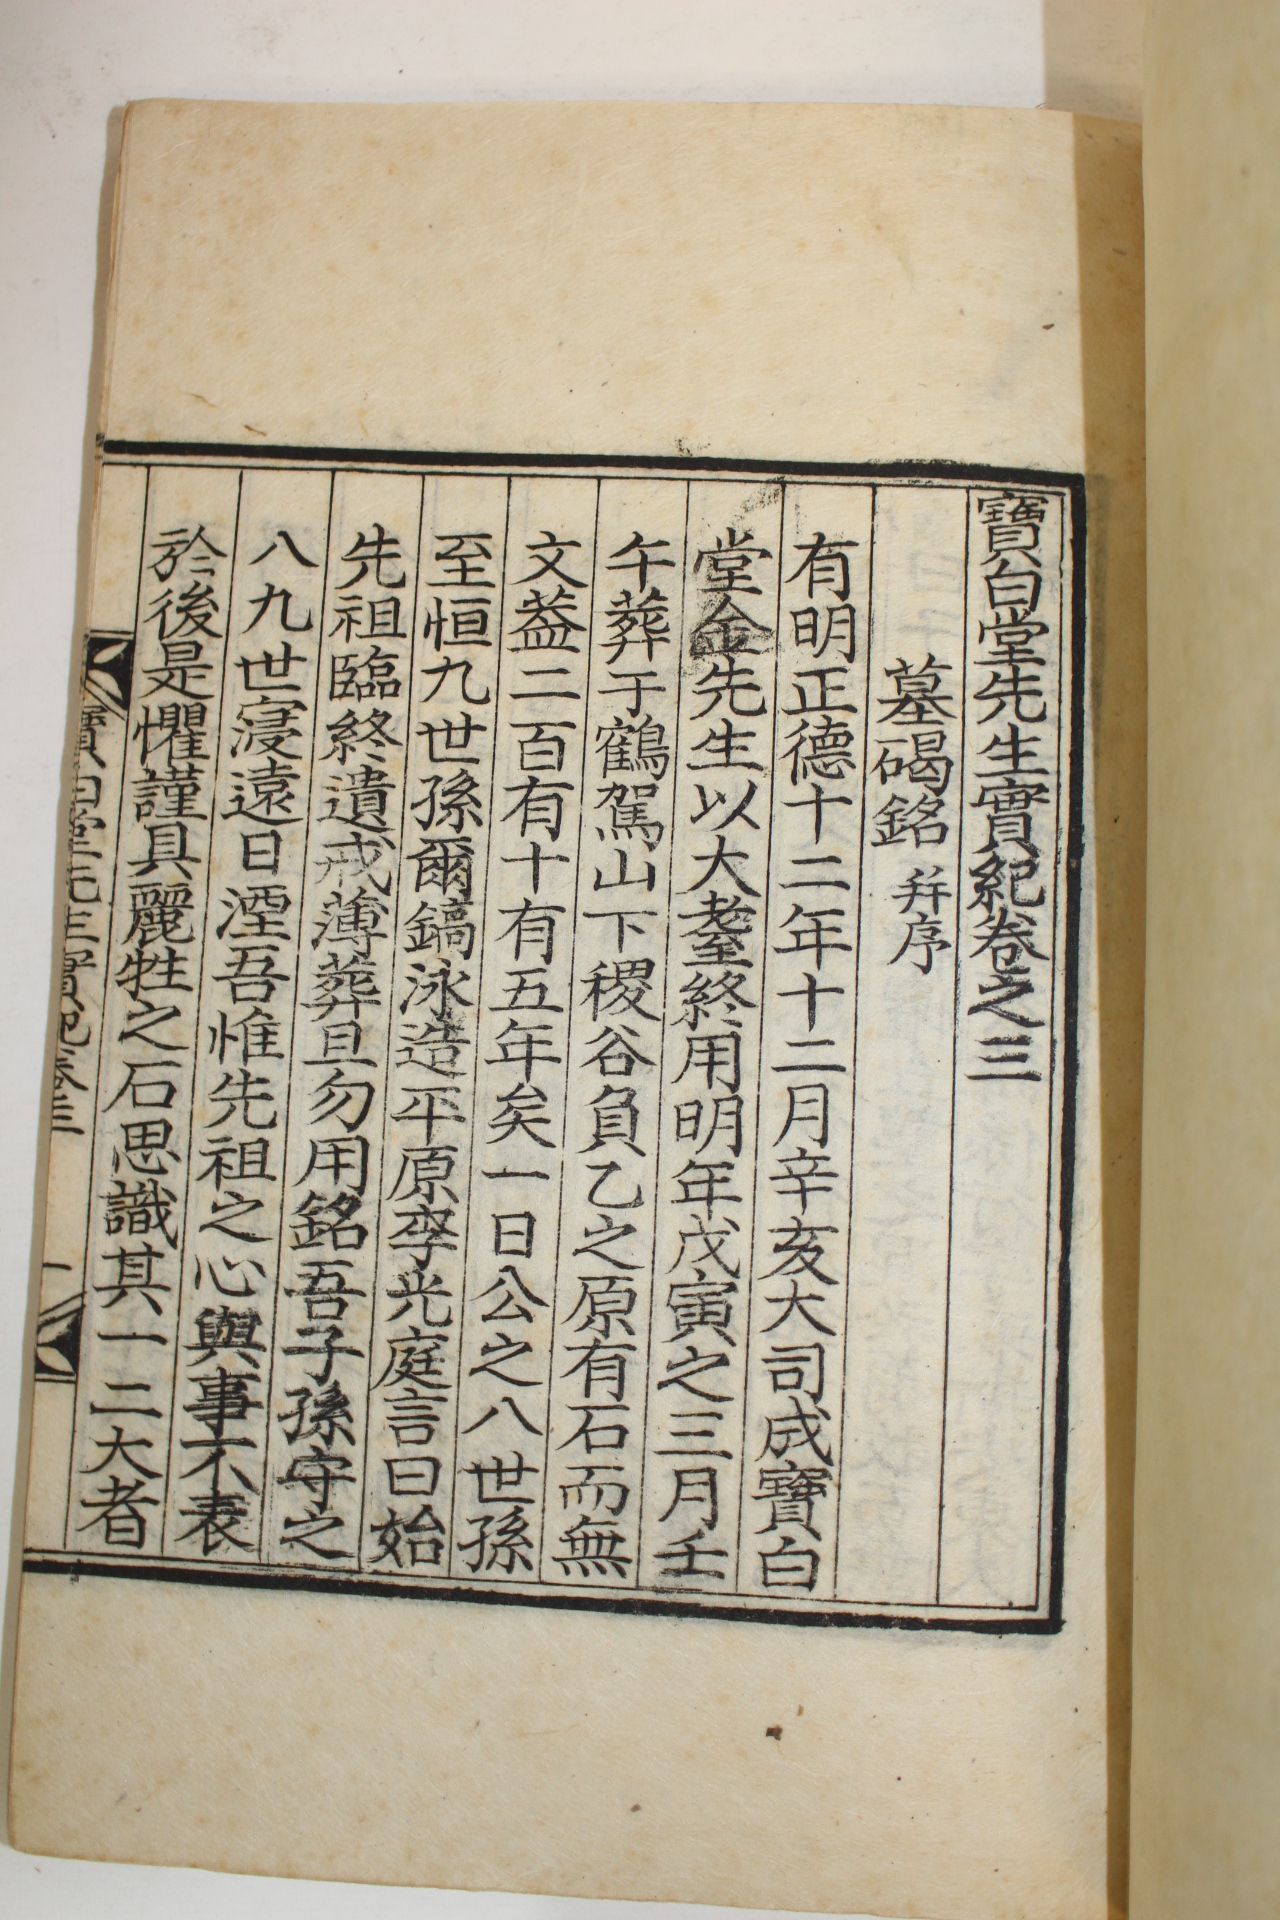 寶白堂先生實紀卷之三
墓碣銘 幷序
有明正德十二年十二月辛亥大司成寶白
堂金先生以大耋終用明年戊寅之三月壬
午葬于鶴駕山下稷谷負乙之原有石而無
文葢二百有十有五年矣一日公之八世孫
至恒九世孫爾鎬泳造平原李光庭言曰始
先祖臨終遺戒薄葬且勿用銘吾子孫守之
八九世寖遠日湮吾惟先祖之心與事不表
於後是懼謹具麗牲之石思識其一二大者
寶白堂先生實紀卷三 一